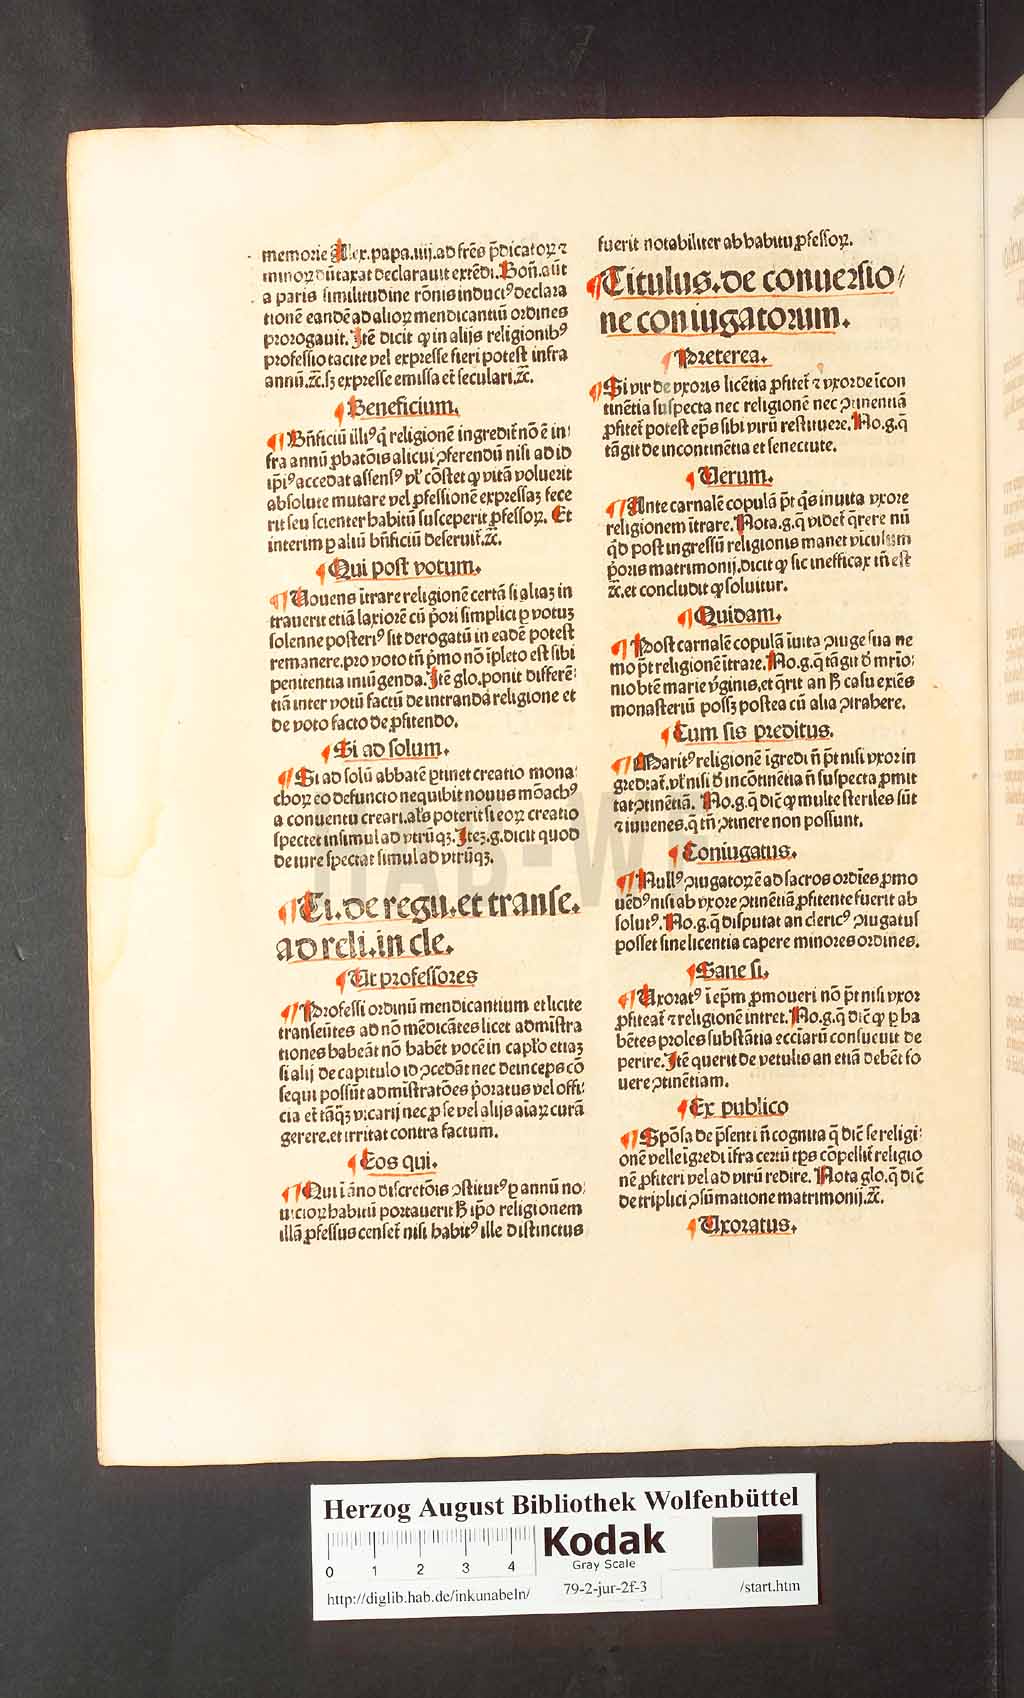 memorie Alex.papa.iiij.ad frēs p̄dicatoꝝ ⁊
minoꝝ dūtaxat declarauit extēdi. Bon̄.aūt
a paris similitudine rōnis inductꝰ declara
tionē eandē ad alioꝝ mendicantiū ordines
prorogauit. Itē dicit ꝙ in alijs religionibꝰ
professio tacite vel expresse fieri potest infra
annū.⁊c̄.sꝫ expresse emissa et̄ seculari.⁊c̄.
¶ Beneficium.
¶ Bn̄ficiū illiꝰ q̄ religionē ingredit̄ nō ē in
fra annū ꝓbatōis alicui ꝯferendū nisi ad id
ip̄iꝰ accedat assensꝰ vl̓ cōstet ꝙ vitā voluerit
absolute mutare vel ꝓfessionē expressaꝫ fece
rit seu scienter habitū susceperit ꝓfessoꝝ. Et
interim ꝑ aliū bn̄ficiū deseruit̄.⁊c̄.
¶ Qui post votum.
¶ Uouens ītrare religionē certā si aliaꝫ in
trauerit etiā laxiorē cū p̄ori simplici ꝑ votuꝫ
solenne posteriꝰ sit derogatū in eadē potest
remanere.pro voto tn̄ p̄mo nō īpleto est sibi
penitentia iniūgenda. Itē glo.ponit differē
tiā inter votū factū de intranda religione et
de voto facto de ꝓfitendo.
¶ Si ad solum.
¶ Si ad solū abbatē ꝑtinet creatio mona
choꝝ eo defuncto nequibit nouus mōachꝰ
a conuentu creari.al̓s poterit si eoꝝ creatio
spectet insimul ad vtrūqꝫ. Iteꝫ.g.dicit quod
de iure spectat simul ad vtrūqꝫ.
¶ Ti.de regu.et transe.
ad reli.in cle.
¶ Ut professores
¶ Professi ordinū mendicantium et licite
transeūtes ad nō mēdicātes licet admistra
tiones habeāt nō habēt vocē in capl̓o etiaꝫ
si alij de capitulo id ꝯcedāt nec deinceps cō
sequi possūt admīstratōes p̄oratus vel offi
cia et̄ tāqꝫ vicarij nec ꝓ se vel alijs aīaꝝ curā
gerere.et irritat contra factum.
¶ Eos qui.
¶ Qui ī āno discretōis ꝯstitutꝰ ꝑ annū no
uicioꝝ habitū portauerit h̄ ip̄o religionem
illā ꝓfessus censet̄ nisi habitꝰ ille distinctus
fuerit notabiliter ab habitu ꝓfessoꝝ.
¶ Titulus.de conuersio
ne coniugatorum.
¶ Preterea.
¶ Si vir de vxoris licētia ꝓfitet̄ ⁊ vxor de īcon
tinētia suspecta nec religionē nec ꝯtinentiā
ꝓfitet̄ potest ep̄s sibi virū restituere. No.g.q̄
tāgit de incontinētia et senectute.
¶ Uerum.
¶ Ante carnalē copulā p̄t q̄s inuita vxore
religionem ītrare. Nota.g.q̄ videt̄ q̄rere nū
q̄d post ingressū religionis manet vinculum
p̄oris matrimonij.dicit ꝙ sic inefficax in̄ est
⁊c̄.et concludit ꝙ soluitur.
¶ Quidam.
¶ Post carnalē copulā īuita ꝯiuge sua ne
mo p̄t religionē ītrare. No.g.q̄ tāgit d̄ mr̄io
nio btē marie v̓ginis.et q̄rit an h̄ casu exiēs
monasteriū possꝫ postea cū alia ꝯtrahere.
¶ Cum sis preditus.
¶ Maritꝰ religionē īgredi n̄ p̄t nisi vxor in
grediat̄.vl̓ nisi d̄ incōtinētia n̄ suspecta ꝓmit
tat ꝯtinētiā. No.g.q̄ dic̄ ꝙ multe steriles sūt
⁊ iuuenes.q̄ tn̄ ꝯtinere non possunt.
¶ Coniugatus.
¶ Nullꝰ ꝯiugatoꝝ ē ad sacros ordīes ꝓmo
uēdꝰ nisi ab vxore ꝯtinētiā ꝓfitente fuerit ab
solutꝰ. No.g.q̄ disputat an clericꝰ ꝯiugatus
posset sine licentia capere minores ordines.
¶ Sane si.
¶ Uxoratꝰ ī ep̄m ꝓmoueri nō p̄t nisi vxor
ꝓfiteat̄ ⁊ religionē intret. No.g.q̄ dic̄ ꝙ ꝑ ha
bētes proles substātia ecciarū consueuit de
perire. Itē querit de vetulis an etiā debēt fo
uere ꝯtinētiam.
¶ Ex publico
¶ Spōsa de p̄senti n̄ cognita q̄ dic̄ se religi
onē velle īgredi īfra certū tp̄s cōpellit̄ religio
nē ꝓfiteri vel ad virū redire. Nota glo.q̄ dic̄
de triplici ꝯsūmatione matrimonij.⁊c̄.
¶ Uxoratus.
HAB-WF
Herzog August Bibliothek Wolfenbüttel
0 1 2 3 4
Kodak
Gray Scale
http://diglib.hab.de/inkunabeln/ 79-2-jur-2f-3 /start.htm